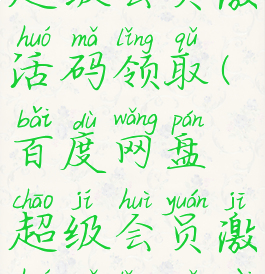 超级会员激
huó mǎ lǐng qǔ
活码领取(
bǎi dù wǎng pán
百度网盘
chāo jí huì yuán jī
超级会员激